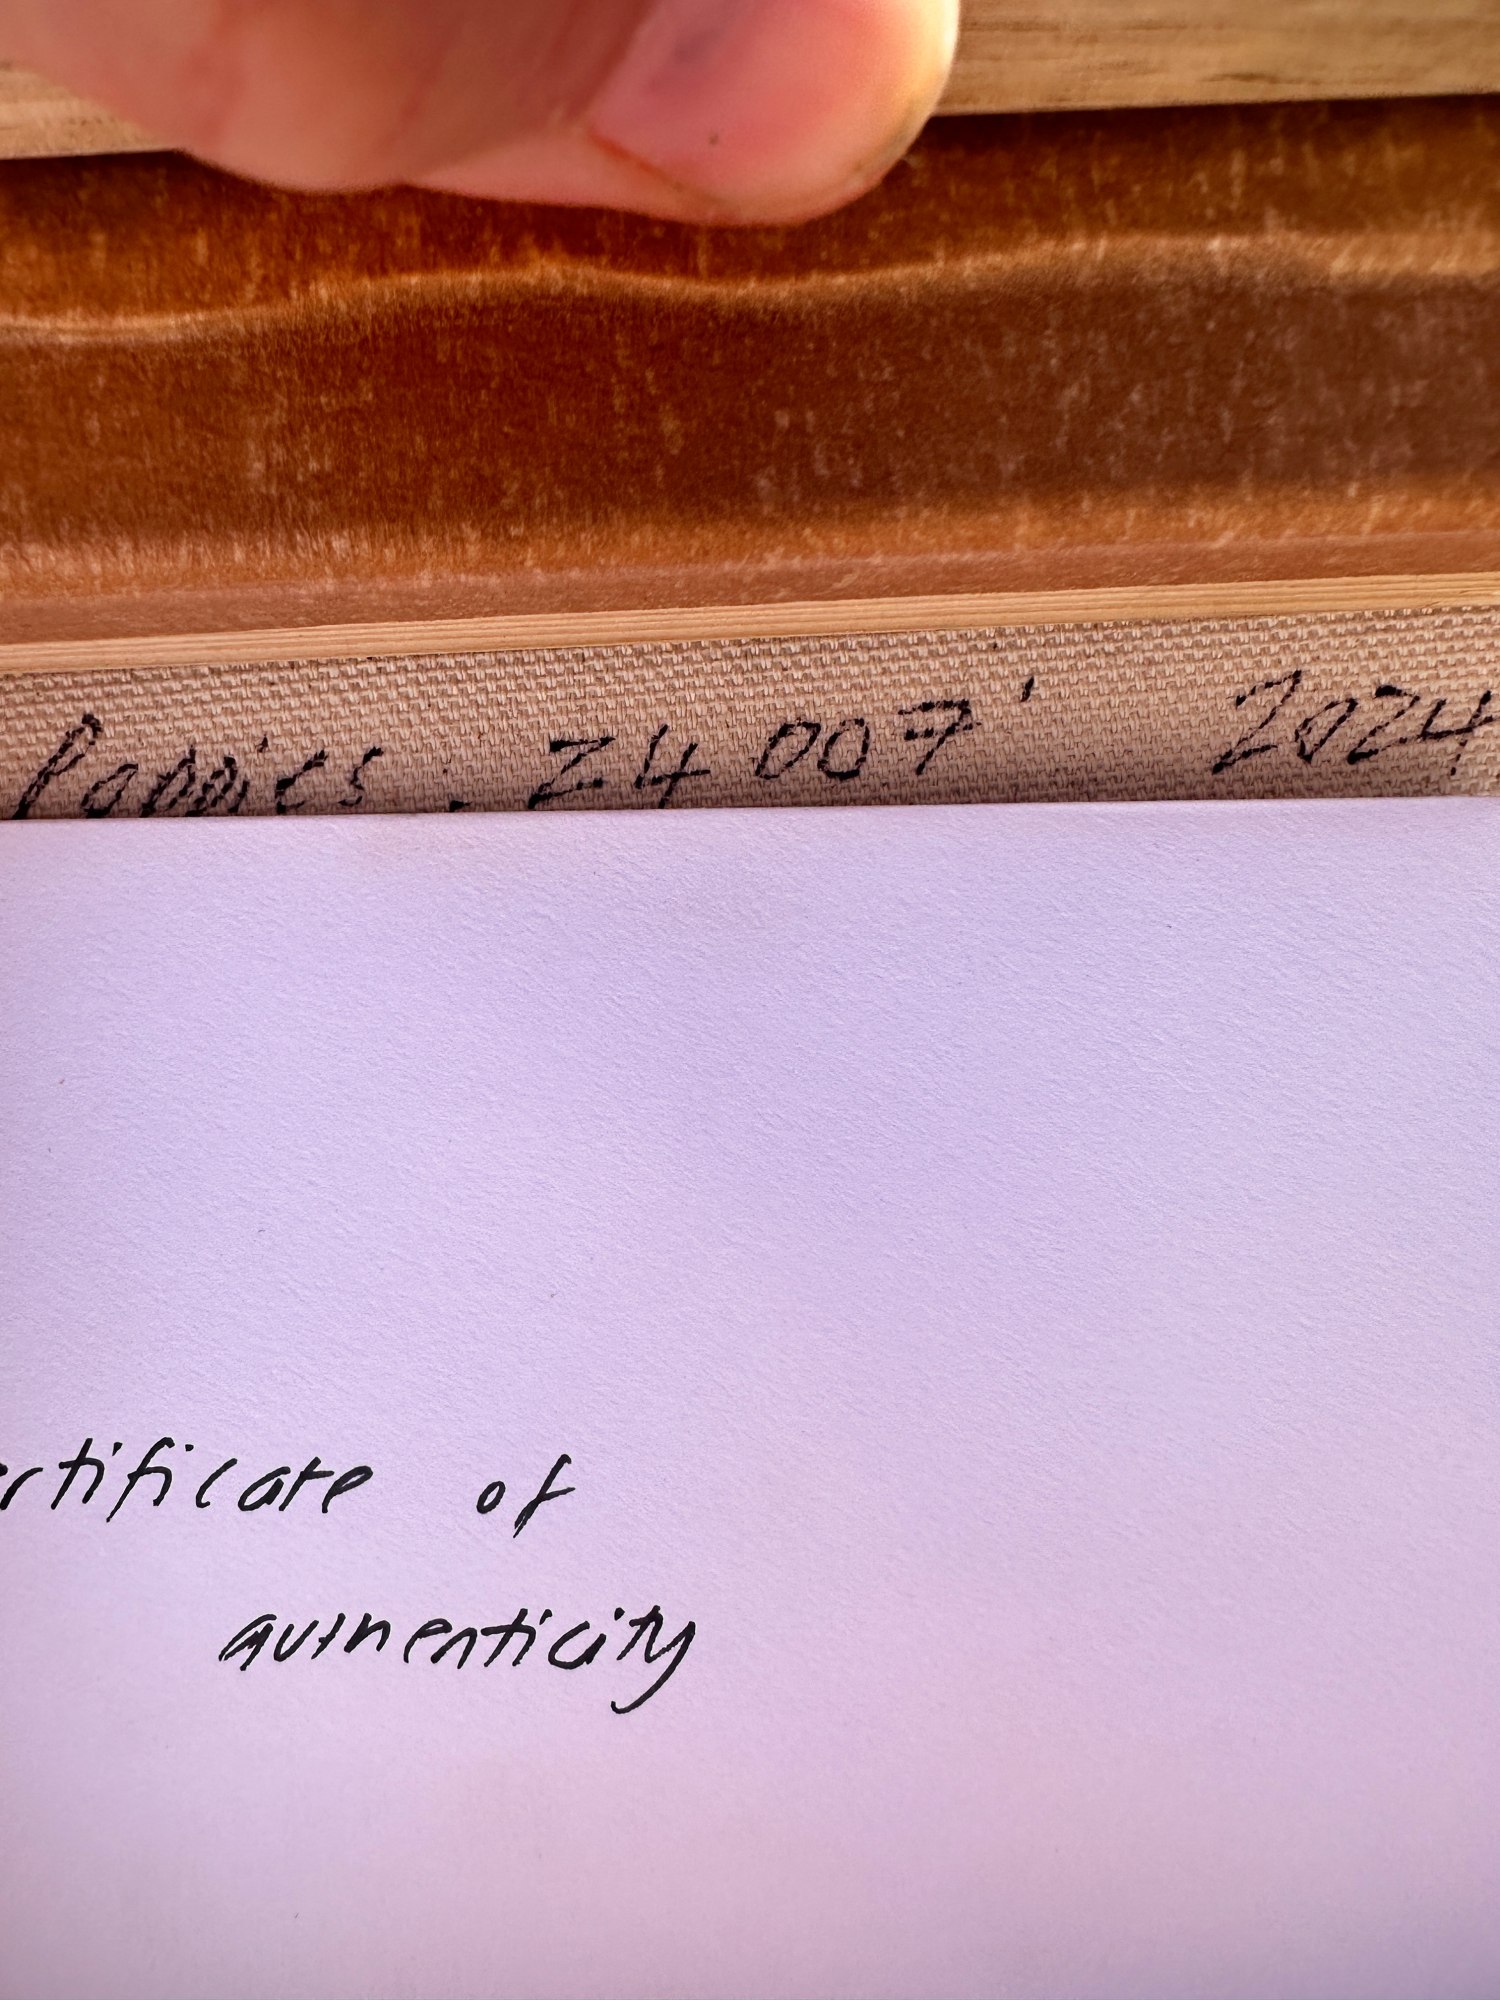 Poppies. 24007' 2024
ertificate of
authenticity